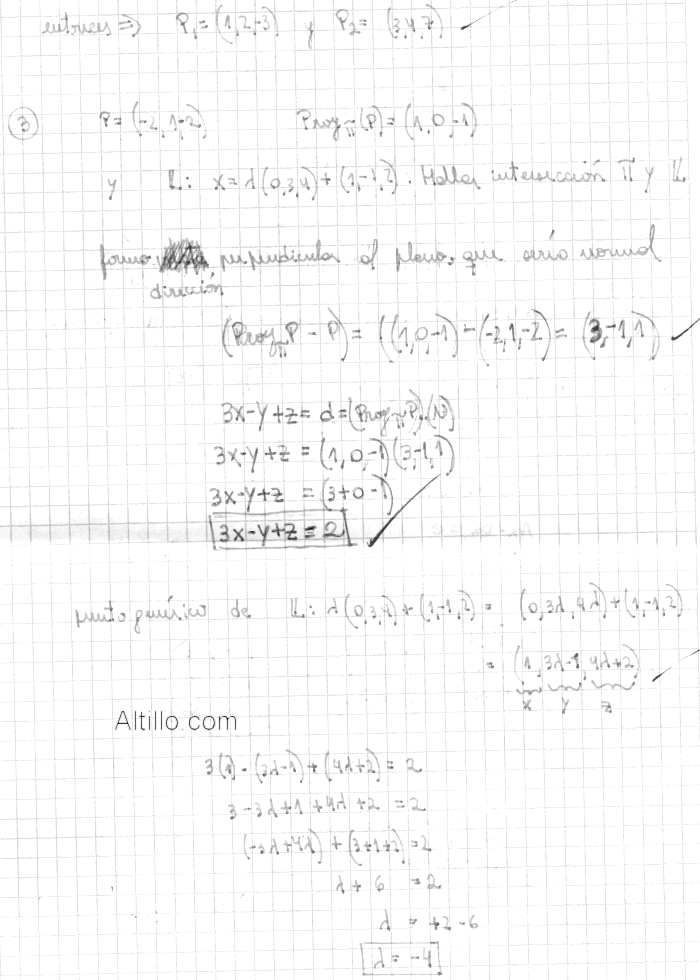 entonces ⇒ P₁ = (1,2,-3) y P₂ = (3,4,7)
③ P = (-2,1,-2) Proy_π(P) = (1,0,-1)
y 𝕃: x = λ(0,3,4) + (1,-1,2). Hallar intersección π y 𝕃
forma perpendicular al plano, que sería normal
dirección
(Proy_π P - P) = ((1,0,-1) - (-2,1,-2) = (3,-1,1)
3x-y+z = d = (Proy_π P).(N)
3x-y+z = (1,0,-1)(3,-1,1)
3x-y+z = (3+0-1)
3x-y+z = 2
punto genérico de 𝕃: λ(0,3,4) + (1,-1,2) = (0,3λ,4λ) + (1,-1,2)
= (1, 3λ-1, 4λ+2)
x y z
Altillo.com
3(1) - (3λ-1) + (4λ+2) = 2
3-3λ+1+4λ+2 = 2
(-3λ+4λ) + (3+1+2) = 2
λ + 6 = 2
λ = +2-6
λ = -4